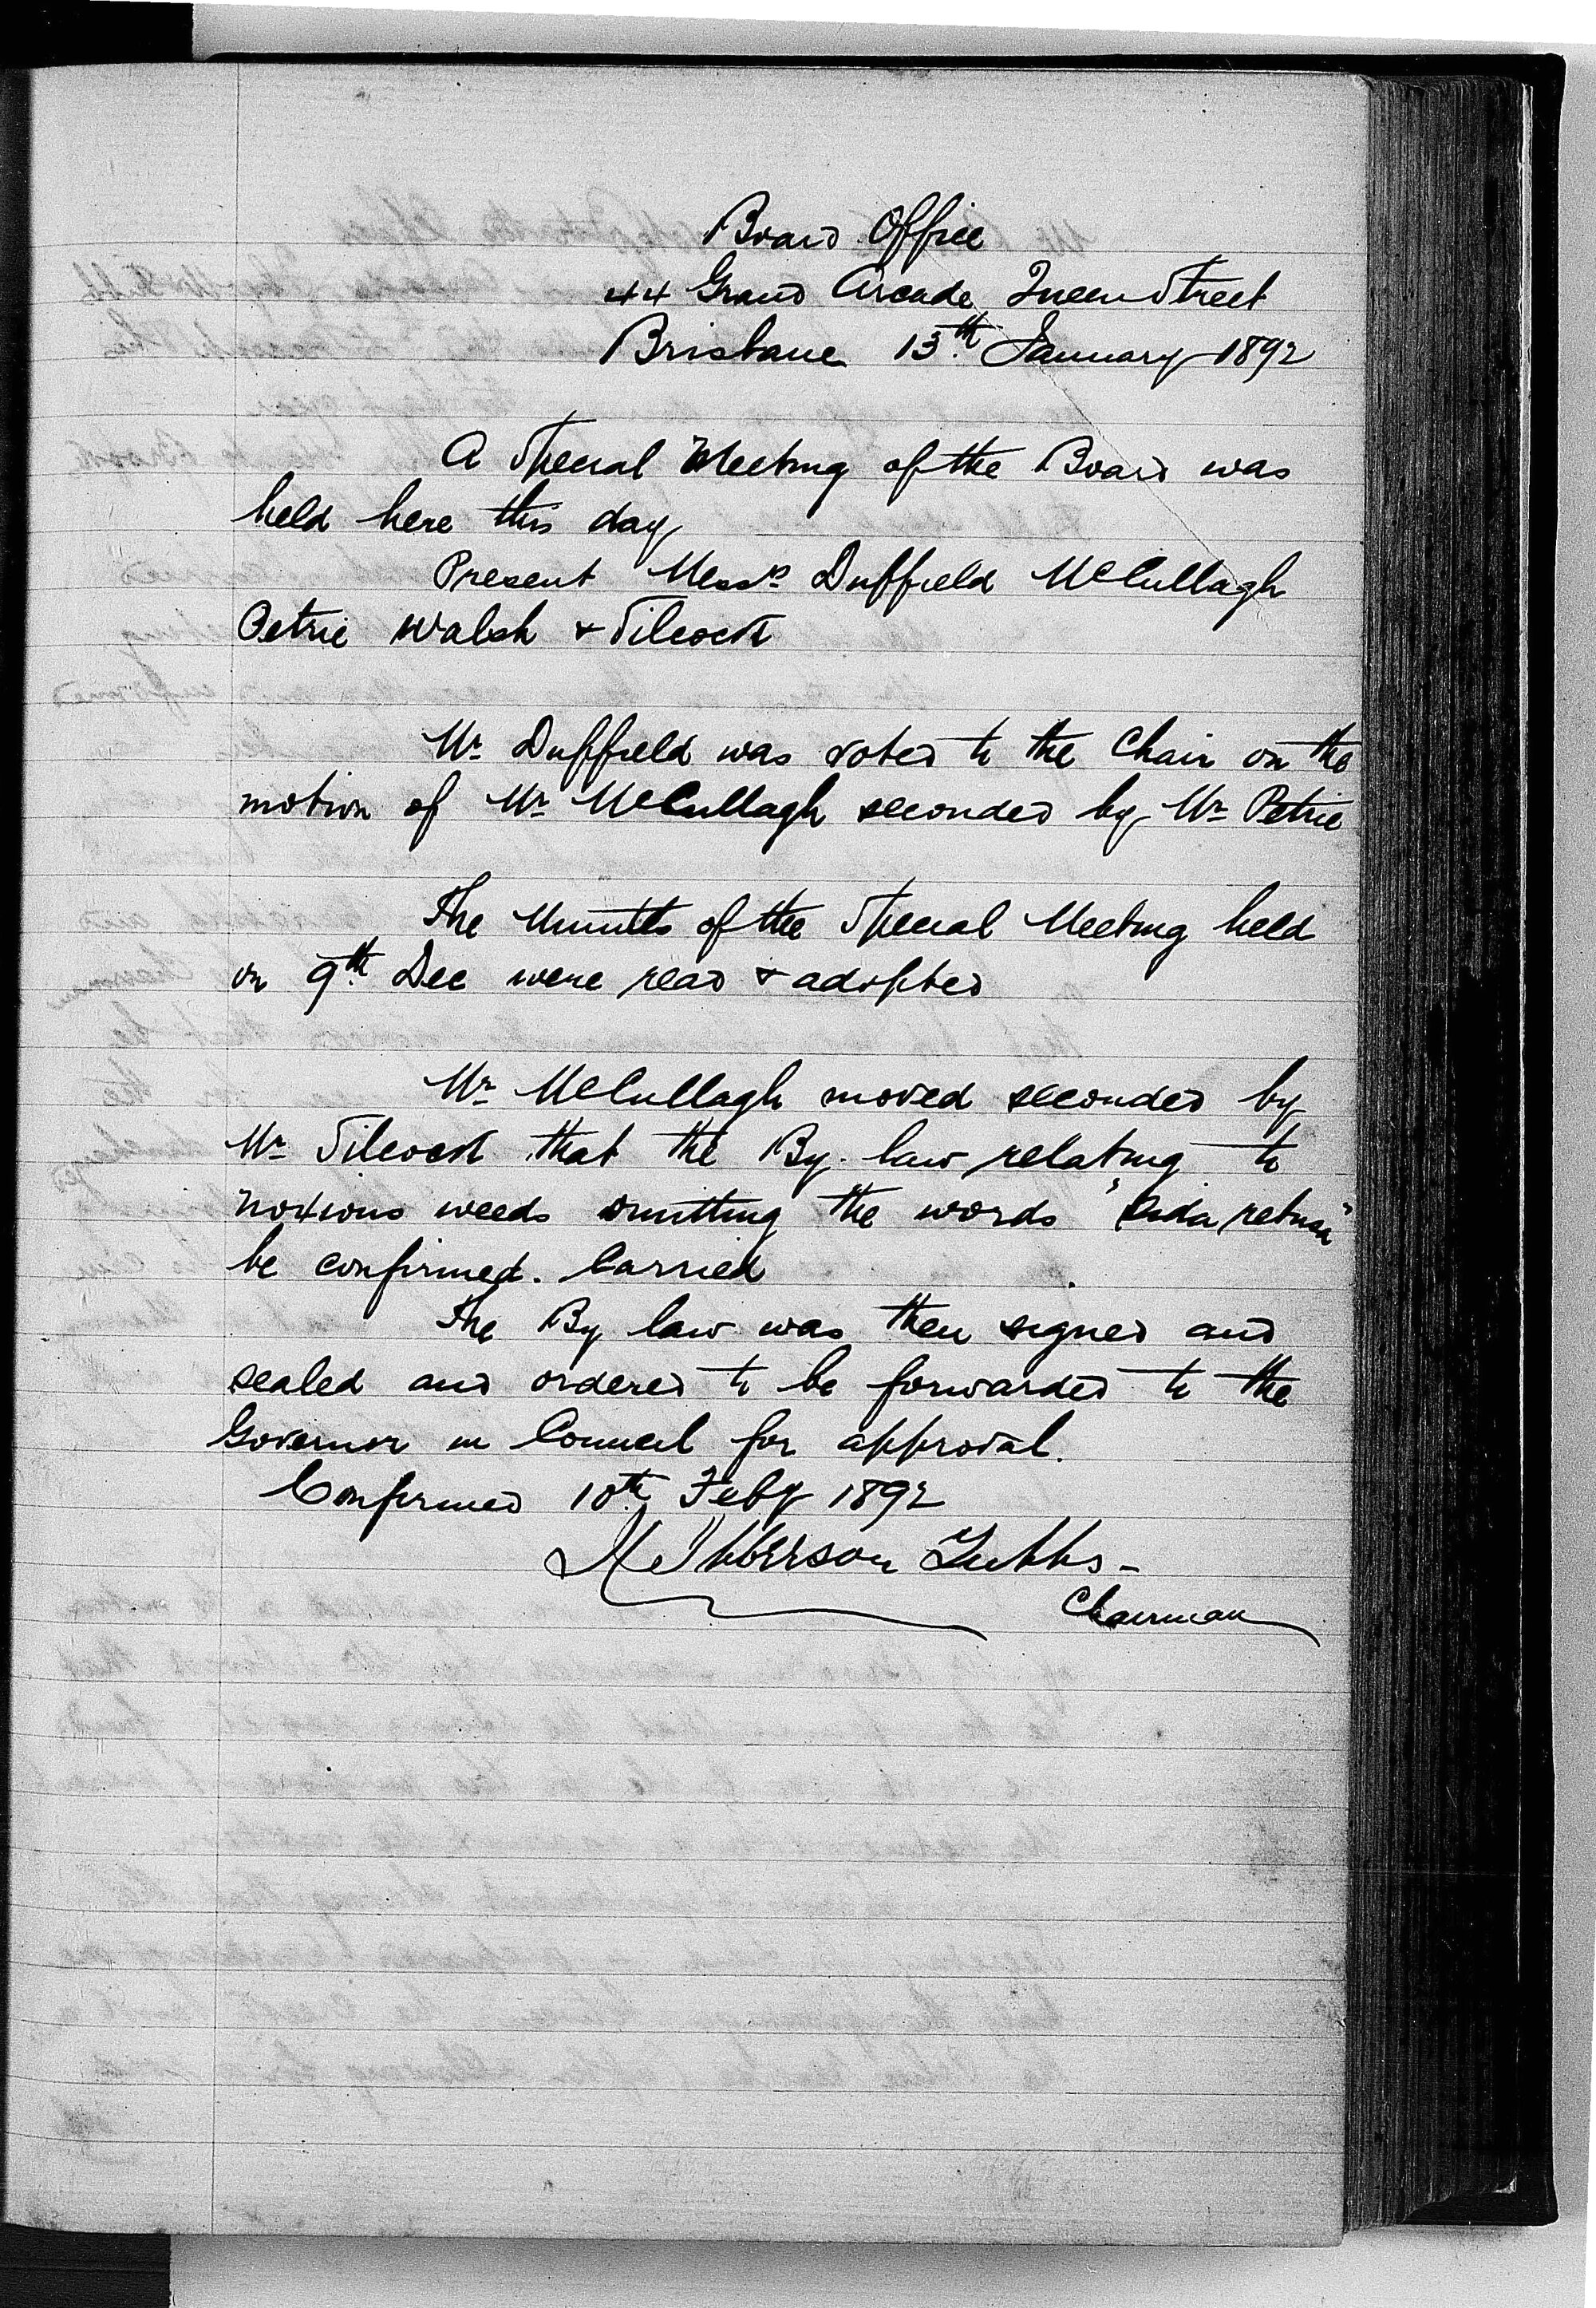 Board Office
44 Grand Arcade Queen Street
Brisbane 13th January 1892
A Special Meeting of the Board was
held here this day
Present Messrs Duffield McCullagh
Petrie Walsh & Silcock
Mr Duffield was voted to the Chair on the
motion of Mr McCullagh seconded by Mr Petrie
The Minutes of the Special Meeting held
on 9th Dec were read & adopted
Mr McCullagh moved seconded by
Mr Silcock that the By. law relating to
noxious weeds omitting the words "Sida retusa"
be confirmed. Carried
The By law was then signed and
sealed and ordered to be forwarded to the
Governor in Council for approval.
Confirmed 10th Feby 1892
Chairman